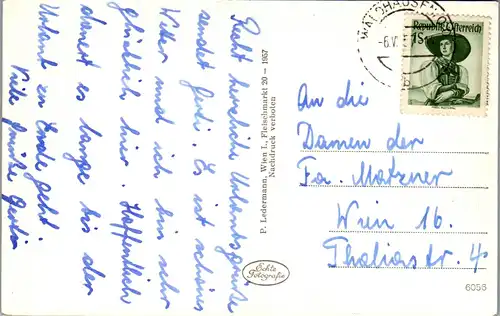 Recht herzliche Urlaubsgrüße
sendet Gerti. Es ist schönes
Wetter und ich bin sehr
glücklich hier. Hoffentlich
dauert es lange bis der
Urlaub zu Ende geht.
Viele Grüße Gerti
P. Ledermann, Wien I., Fleischmarkt 20 — 1957
Nachdruck verboten
Echte
Fotografie
WALDHAUSEN
-6.V
Republik Österreich
1S
An die
Damen der
Fa. Matzner
Wien 16.
Thaliastr. 4
6056